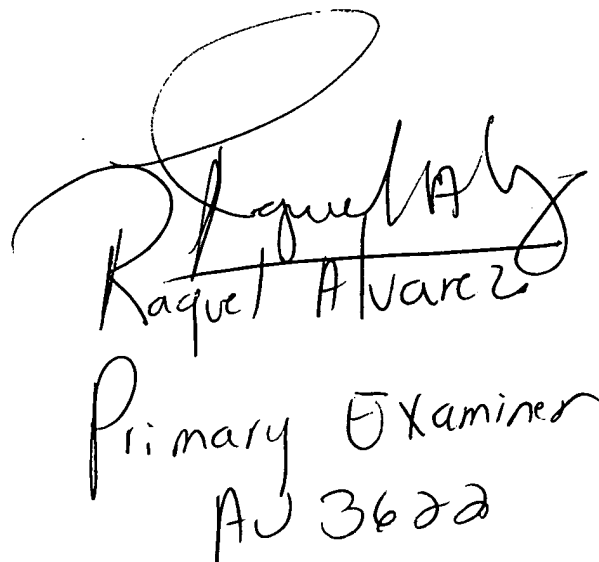 Raquel Alv
Raquel Alvarez
Primary Examiner
AU 3622